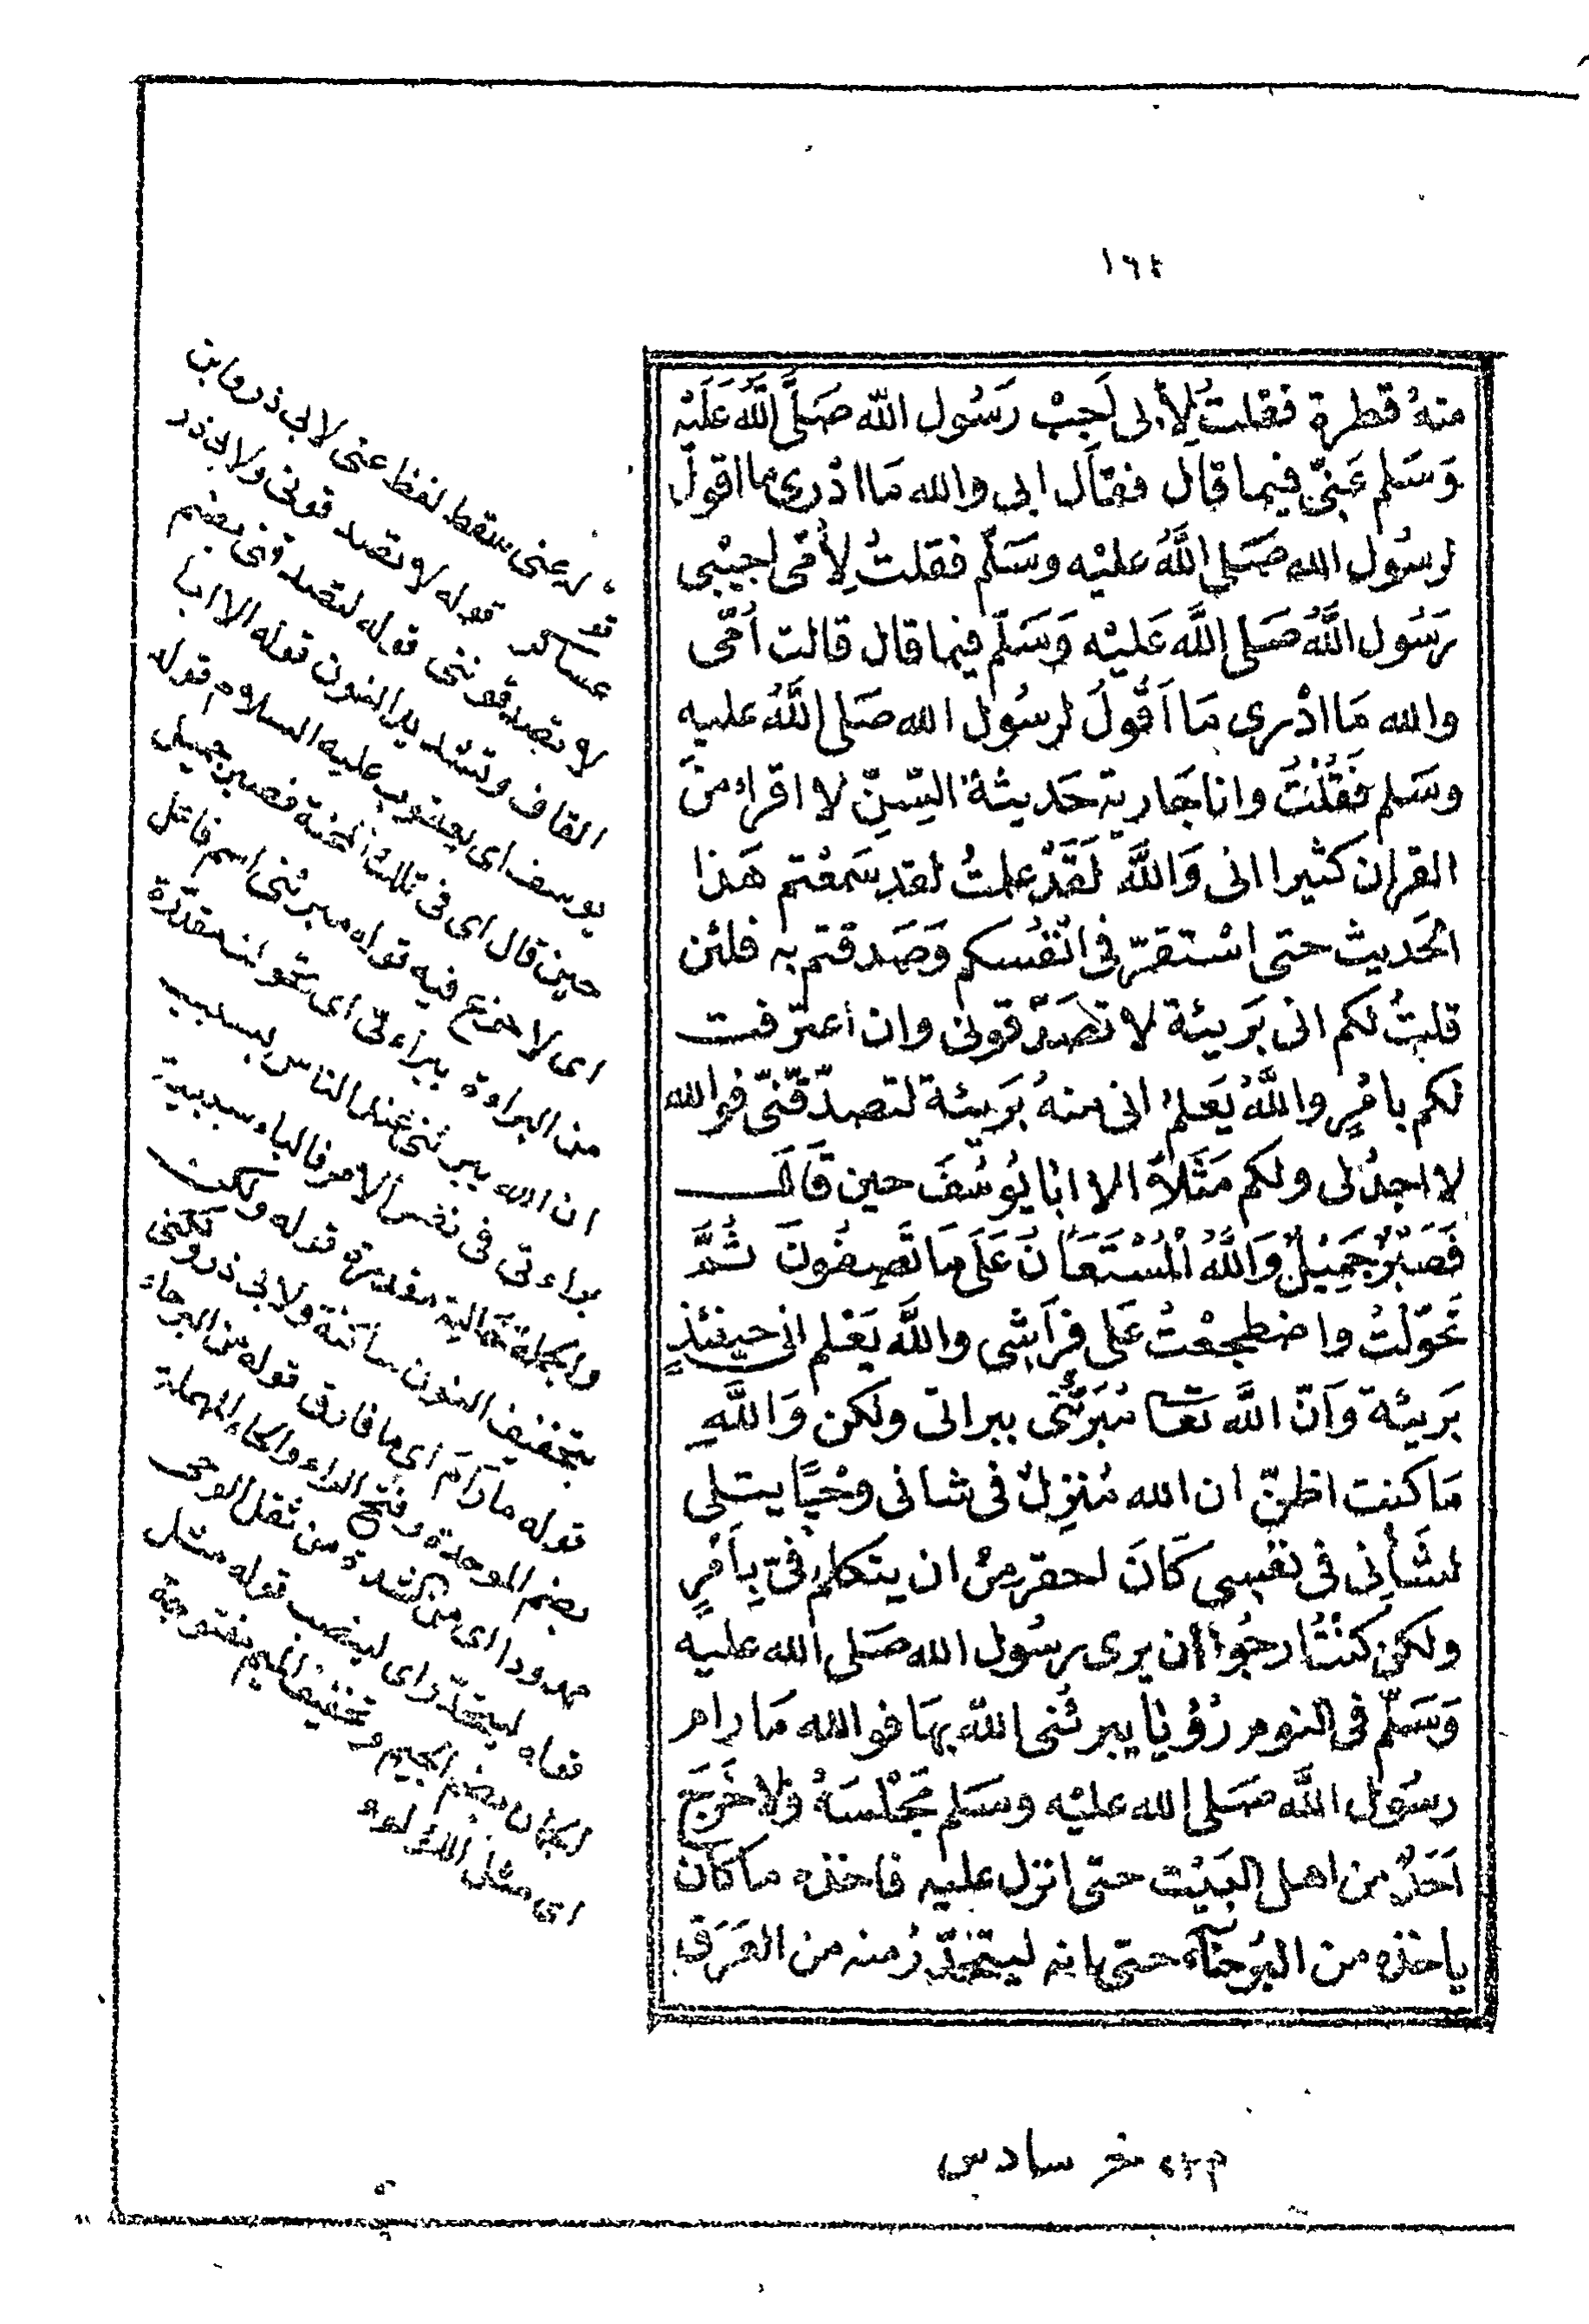 ١٦٤
منهُ قطرة فقلتُ لِأبى اَجِبْ رَسُول الله صَلَّى اللَّهُ عَلَيْه
وَسَلم عَنِّى فيما قال فقال ابى والله مَا ادْرى ما اقولُ
لرسُول الله صَلى اللَّهُ عليْه وسَلّم فقلتُ لِأمّى اجيْبى
رَسُول اللَّهُ صَلى اللَّه عَليْه وَسَلّم فيما قال قالت اُمّى
والله مَا ادْرى مَا اَقُولُ لرسُول الله صَلى اللَّهُ عليه
وسَلم فَقُلْتُ وانا جَارية حَديثةُ السِّنِّ لا اقراء منَ
القران كثيرا انى وَاللَّه لَقَدْ علمتُ لقد سَمعْتم هَذا
الحَديث حتى اسْتقرّ فى انْفُسكم وَصَدقتم به فلئن
قلتُ لكم انى بَريئة لا تصَدّقونى وان اعترفت
لكم بامْرٍ واللَّهُ يَعلمُ انى منهُ بَريئة لتصدّقنّى فوالله
لا اجدُ لى ولكم مَثَلاً الا ابَا يُوسُفَ حين قَالَ
فَصَبْرٌ جَمِيْلٌ وَاللَّهُ الْمُسْتَعَانُ عَلَى مَا تَصِفُونَ ثُمَّ
تحَوّلتُ واضطجعْتُ عَلى فِرَاشِى واللَّه يَعْلم انى حينئذٍ
بَريئة وَاَنّ اللَّه تعَا مُبَرئنى ببراتى ولكن وَاللَّهِ
مَا كنت اظنّ ان الله مُنْزِلٌ فى شانى وحْيًا يتلى
لشَأنِى فى نفسى كَانَ احقر منْ ان يتكلم فىّ بِاَمْرٍ
ولكن كنْتُ ارجُوا ان يرى رسُول الله صَلى الله عليه
وَسَلّم فى النوم رُؤيا يبرئنى اللَّه بهَا فوالله مَا رام
رسُول اللَّه صَلى الله عليْه وسَلم مَجْلسَهُ وَلا خَرَجَ
اَحَدٌ من اهل البَيْت حتى انزل عليه فاخذه ما كان
ياخذه من البُرحَاء حتى انه ليتحَدّرُ منه من العَرَق
قوله عنى سقط لفظ عنى لابى ذر وابن
عساكر قوله لا تصدقونى ولابى ذر
لا تصدقوننى قوله لتصدقنى بضم
القاف وتشديد النون قوله الا ابا
يوسف اى يعقوب عليه السلام قوله
حين قال اى فى تلك المحنة فصبر جميل
اى لا جزع فيه قوله مبرئنى اسم فاعل
من البراءة ببراءتى اى تحولت مقدّرة
ان الله يبرئنى عند الناس بسبب
براءتى فى نفس الامر فالباء سببية
والجملة حالية مقدرة قوله ولكن
بتخفيف النون ساكنة ولابى ذر ولكنى
قوله ما رَامَ اى ما فارق قوله من البرحاء
بضم الموحدة وفتح الراء والحاء المهملة
مهدودا اى من الشدة من ثقل الوحى
قوله ليتحدّر اى ليصب قوله مثل
الجمان بضم الجيم وتخفيف الميم مفتوحة
اى مثل اللؤلوء
سادس